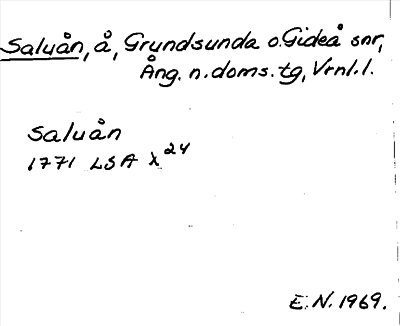 Saluån, å, Grundsunda o. Gideå snr,
Ång. n. doms. tg, Vrnl. l.
Saluån
1771 LSA X²⁴
E. N. 1969.